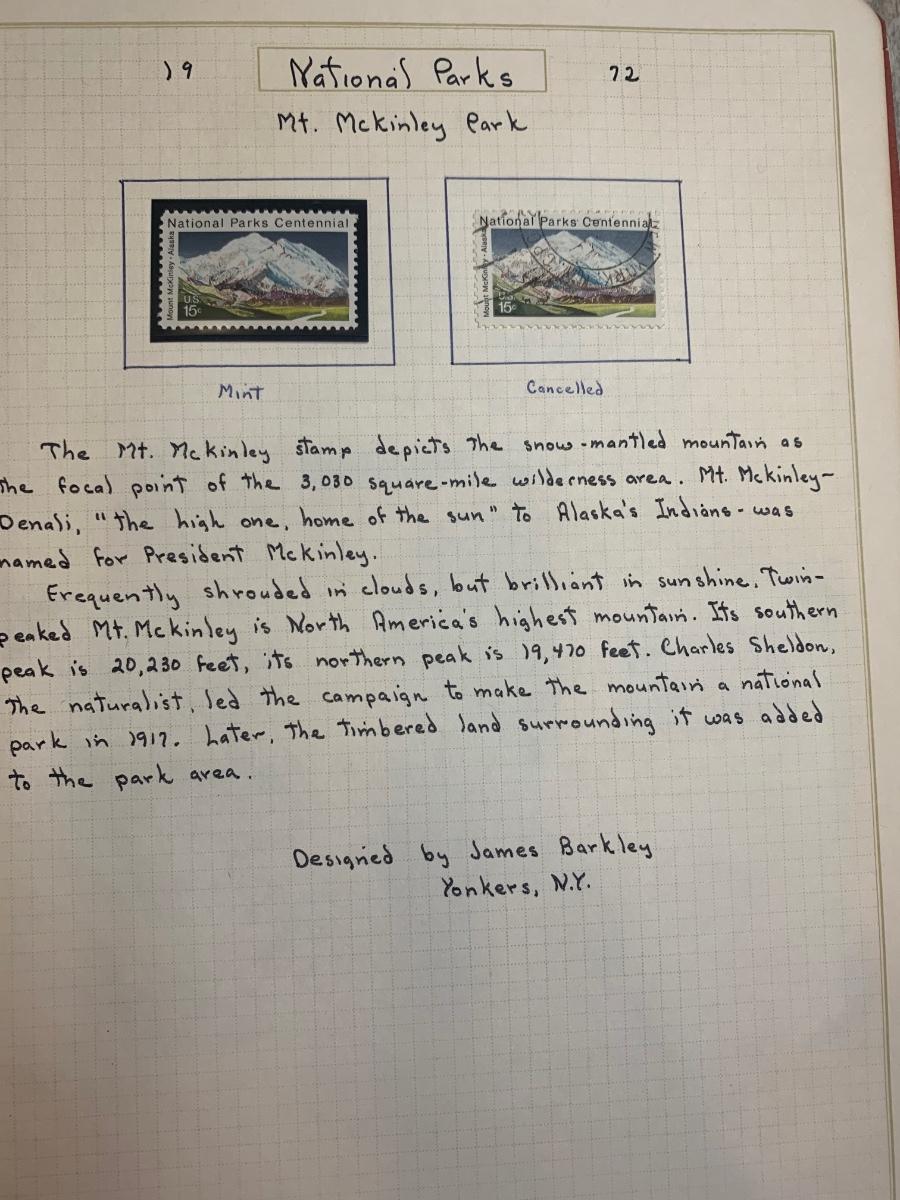 19 National Parks 72
Mt. McKinley Park
National Parks Centennial
Mount McKinley · Alaska
U.S.
15c
National Parks Centennial
Mount McKinley · Alaska
U.S.
15c
Mint
Cancelled
The Mt. McKinley stamp depicts the snow-mantled mountain as
the focal point of the 3,030 square-mile wilderness area. Mt. McKinley-
Denali, "the high one, home of the sun" to Alaska's Indians - was
named for President McKinley.
Frequently shrouded in clouds, but brilliant in sunshine, Twin-
peaked Mt. McKinley is North America's highest mountain. Its southern
peak is 20,230 feet, its northern peak is 19,470 feet. Charles Sheldon,
the naturalist, led the campaign to make the mountain a national
park in 1917. Later, the timbered land surrounding it was added
to the park area.
Designed by James Barkley
Yonkers, N.Y.